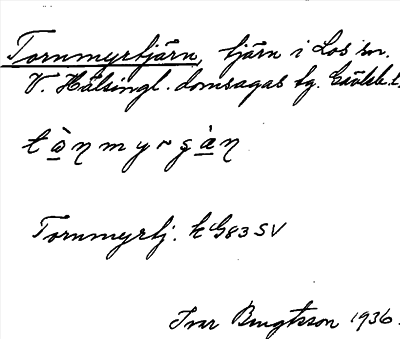 Tornmyrtjärn, tjärn i Los sn.
V. Hälsingl. domsagas tg. Gävleb. l.
Tornmyrtj. k G83 SV
Ivar Bengtsson 1936.